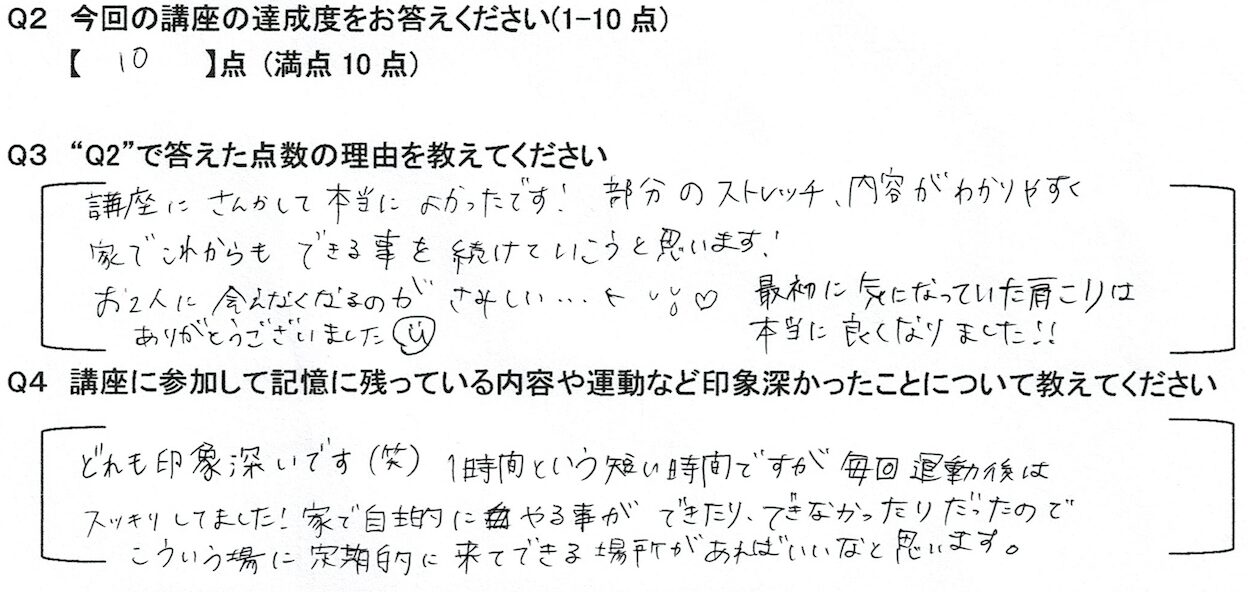 Q2 今回の講座の達成度をお答えください(1-10 点)
【 10 】点 (満点 10 点)
Q3 “Q2”で答えた点数の理由を教えてください
講座に さんかして 本当に よかったです! 部分のストレッチ、内容がわかりやすく
家でこれからも できる事を 続けていこうと思います!
お2人に 会えなくなるのが さみしい…
ありがとうございました
最初に 気になっていた肩こりは
本当に 良くなりました!!
Q4 講座に参加して記憶に残っている内容や運動など印象深かったことについて教えてください
どれも印象深いです(笑) 1時間という短い時間ですが 毎回 運動後は
スッキリしてました! 家で自主的に やる事が できたり、できなかったりだったので
こういう場に 定期的に 来てできる 場所があればいいなと思います。